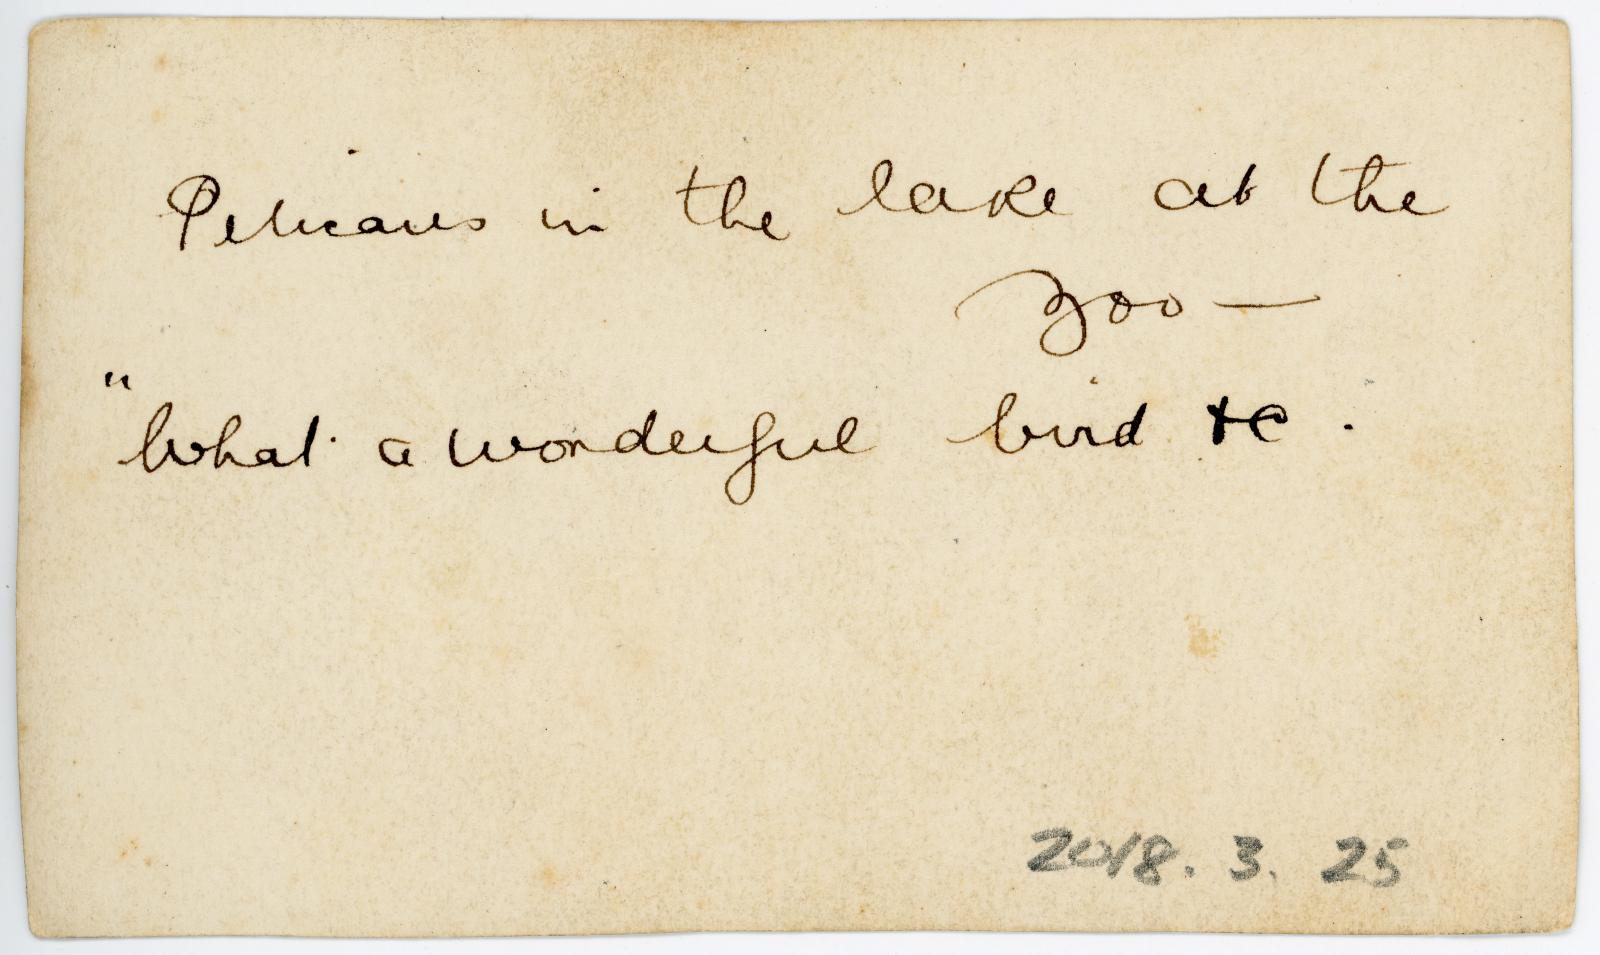 Pelicans in the lake at the
Zoo —
"What a wonderful bird &c.
2018. 3. 25